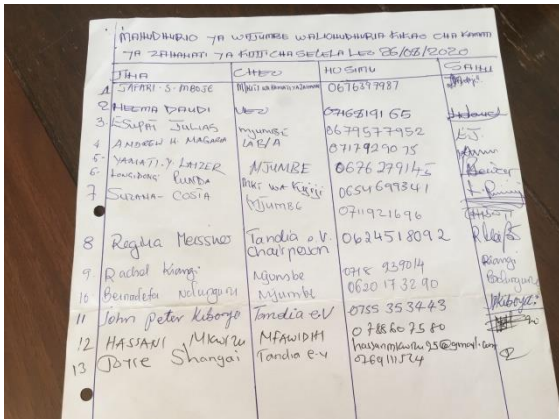 MAHUDHURIO YA WAJUMBE WALIOHUDHURIA KIKAO CHA KAMATI
YA ZAHANATI YA KIJIJI CHA SELELA LEO 26/08/2020
JINA CHEO NO SIMU SAHIHI
1 SAFARI-S-MBOSE 0676397987
2 NEEMA DAUDI VEO 0716819165
3. ESUPAT JULIAS Mjumbe 0679577952 E.J.
4 ANDREW H. MAGARIA LAB/A 0717929075
5- YAMATI.Y.LAIZER MJUMBE 0676279145
6- RUNDA MKT WA Kijiji 0654699341
7 SUZANA-COSTA Mjumbe 0711921696
8 Regina Meissner Tandia e.V. Chairperson 0624518092
9. Rachel Kiangi Mjumbe 0718 939014 Kiangi
10 Bernadeta Mjumbe 0620 17 32 90
11 John Peter Kiboyo Tandia eV 0755 353443
12 HASSANI MKWIZU MFAWIDHI 0788607580
hassanmkwizu95@gmail.com
13 Shangai Tandia e.v 0769111524